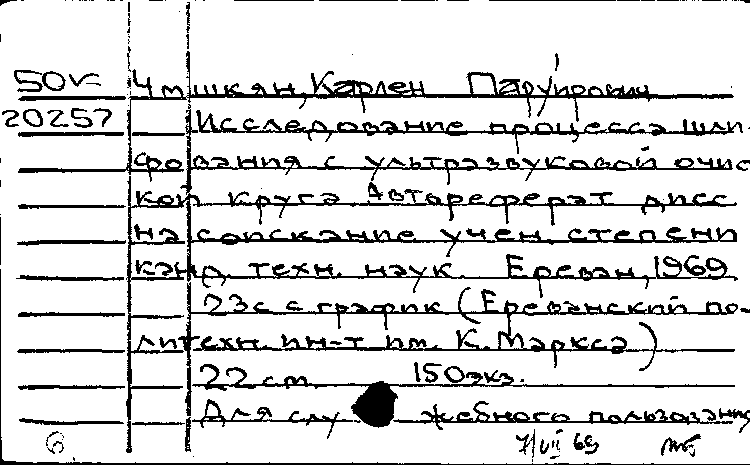 50к Чмшкян, Карлен Паруирович
20257 Исследование процесса шли-
фования с ультразвуковой очис
кой круга. Автореферат дисс
на соискание учен. степени
канд. техн. наук. Ереван, 1969
23с с график (Ереванский по-
литехн. ин-т им. К. Маркса)
22 см. 150экз.
Для служебного пользования
6 7/VII 69